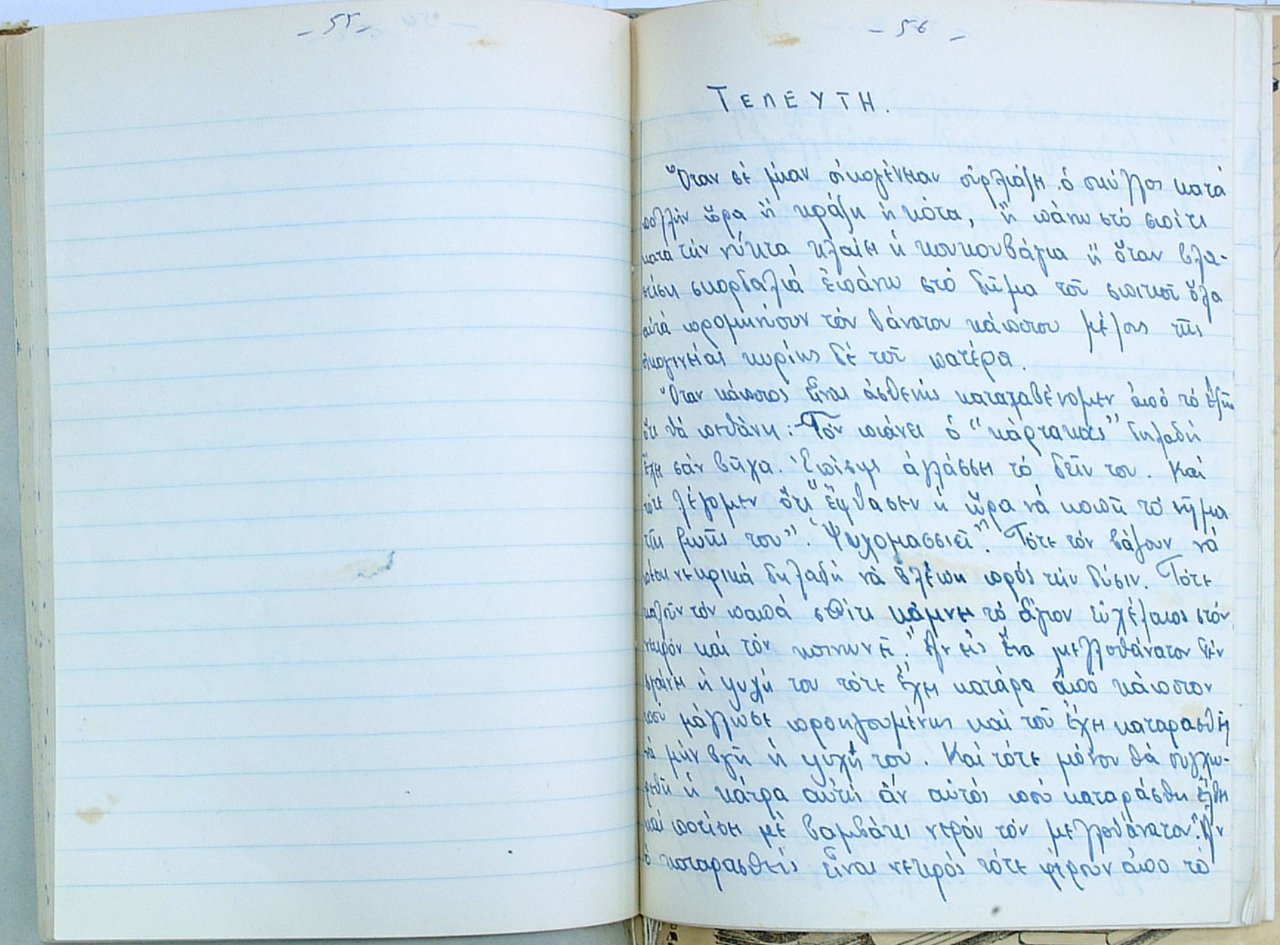 - 55 -
- 56 -
ΤΕΛΕΥΤΗ.
Ὅταν σέ μίαν οἰκογένειαν οὐρλιάζη ὁ σκύλλος κατά
πολλήν ὥρα ἤ κράζη ἡ κότα, ἤ πάνω στό σπίτι
κατά τήν νύκτα κλαίη ἡ κουκουβάγια ἤ ὅταν βλα-
στήση σκορδαλιά ἐπάνω στό δῶμα τοῦ σπιτιοῦ ὅλα
αὐτά προμηνήουν τόν θάνατον κάποιου μέλους τῆς
οἰκογενείας κυρίως δέ τοῦ πατέρα.
Ὅταν κάποιος εἶναι ἀσθενής καταλαβένομεν ἀπό τό ἑξῆς
ὅτι θά πεθάνη: Τόν πιάνει ὁ "κάρτακας" δηλαδή
ἔχει σάν βῆχα. Ἐπίσης ἀλλάσση τό δεῖν του. Καί
τότε λέγομεν ὅτι "ἔφθασεν ἡ ὥρα νά κοπῆ τό νῆμα
τῆς ζωῆς του". "Ψυχομασσιεῖ". Τότε τόν βάζουν νά
πέση νεκρικά δηλαδή νά βλέπη πρός τήν δύσιν. Τότε
καλοῦν τόν παπά σπίτι κάμνει τό ἅγιον εὐχέλαιος στόν
νεκρόν καί τόν κοινωνεῖ. Ἄν εἰς ἕνα μελλοθάνατον δέν
βγαίνη ἡ ψυχή του τότε ἔχη κατάρα ἀπό κάποιον
πού μάλλωσε προηγουμένως καί τοῦ ἔχη καταρασθῆ
νά μήν βγῆ ἡ ψυχή του. Καί τότε μόνον θά συγχω-
ρεθῆ ἡ κάτρα αὐτή ἄν αὐτός πού καταράσθη ἔλθη
καί ποτίση μέ βαμβάκι νερόν τόν μελλοθάνατον. Ἄν
ὁ καταρασθείς εἶναι νεκρός τότε φέρουν ἀπό τό